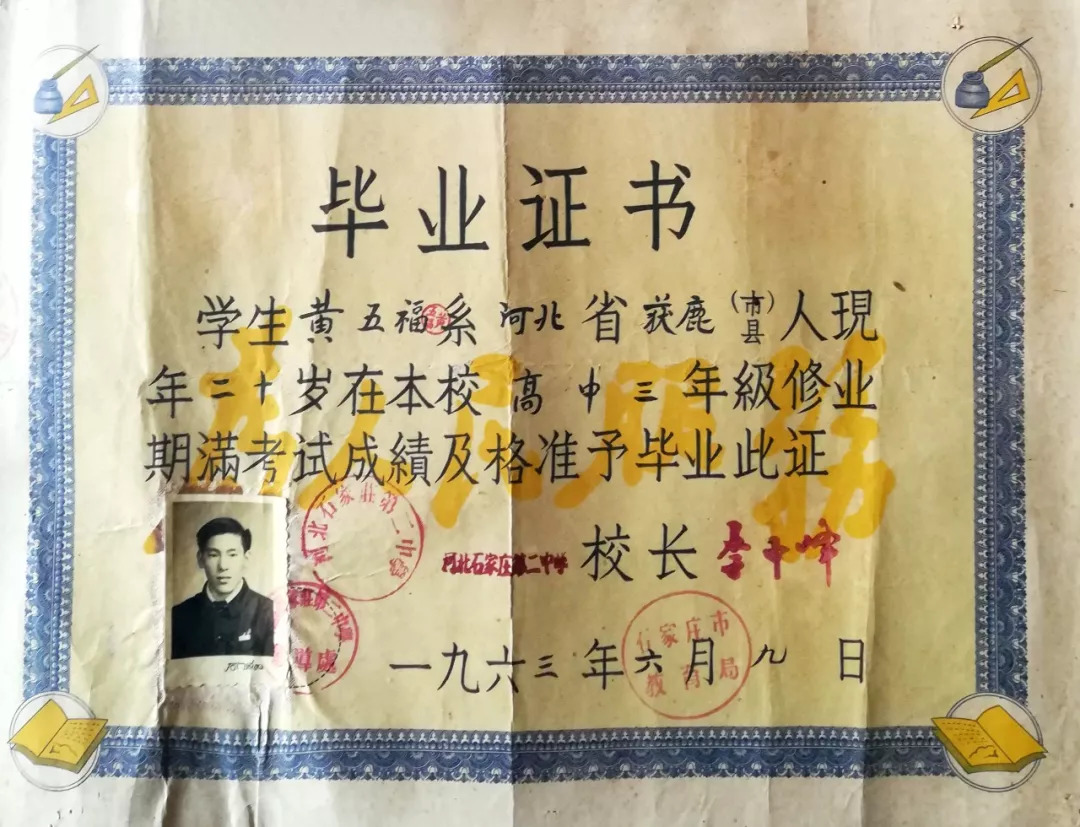 毕业证书
学生黄五福系河北省获鹿(市县)人現
年二十岁在本校高中三年級修业
期滿考试成績及格准予毕业此证
为人民服务
河北石家莊第二中學
河北石家庄第二中学 校长 李千峰
石家庄市教育局
一九六三年六月九日